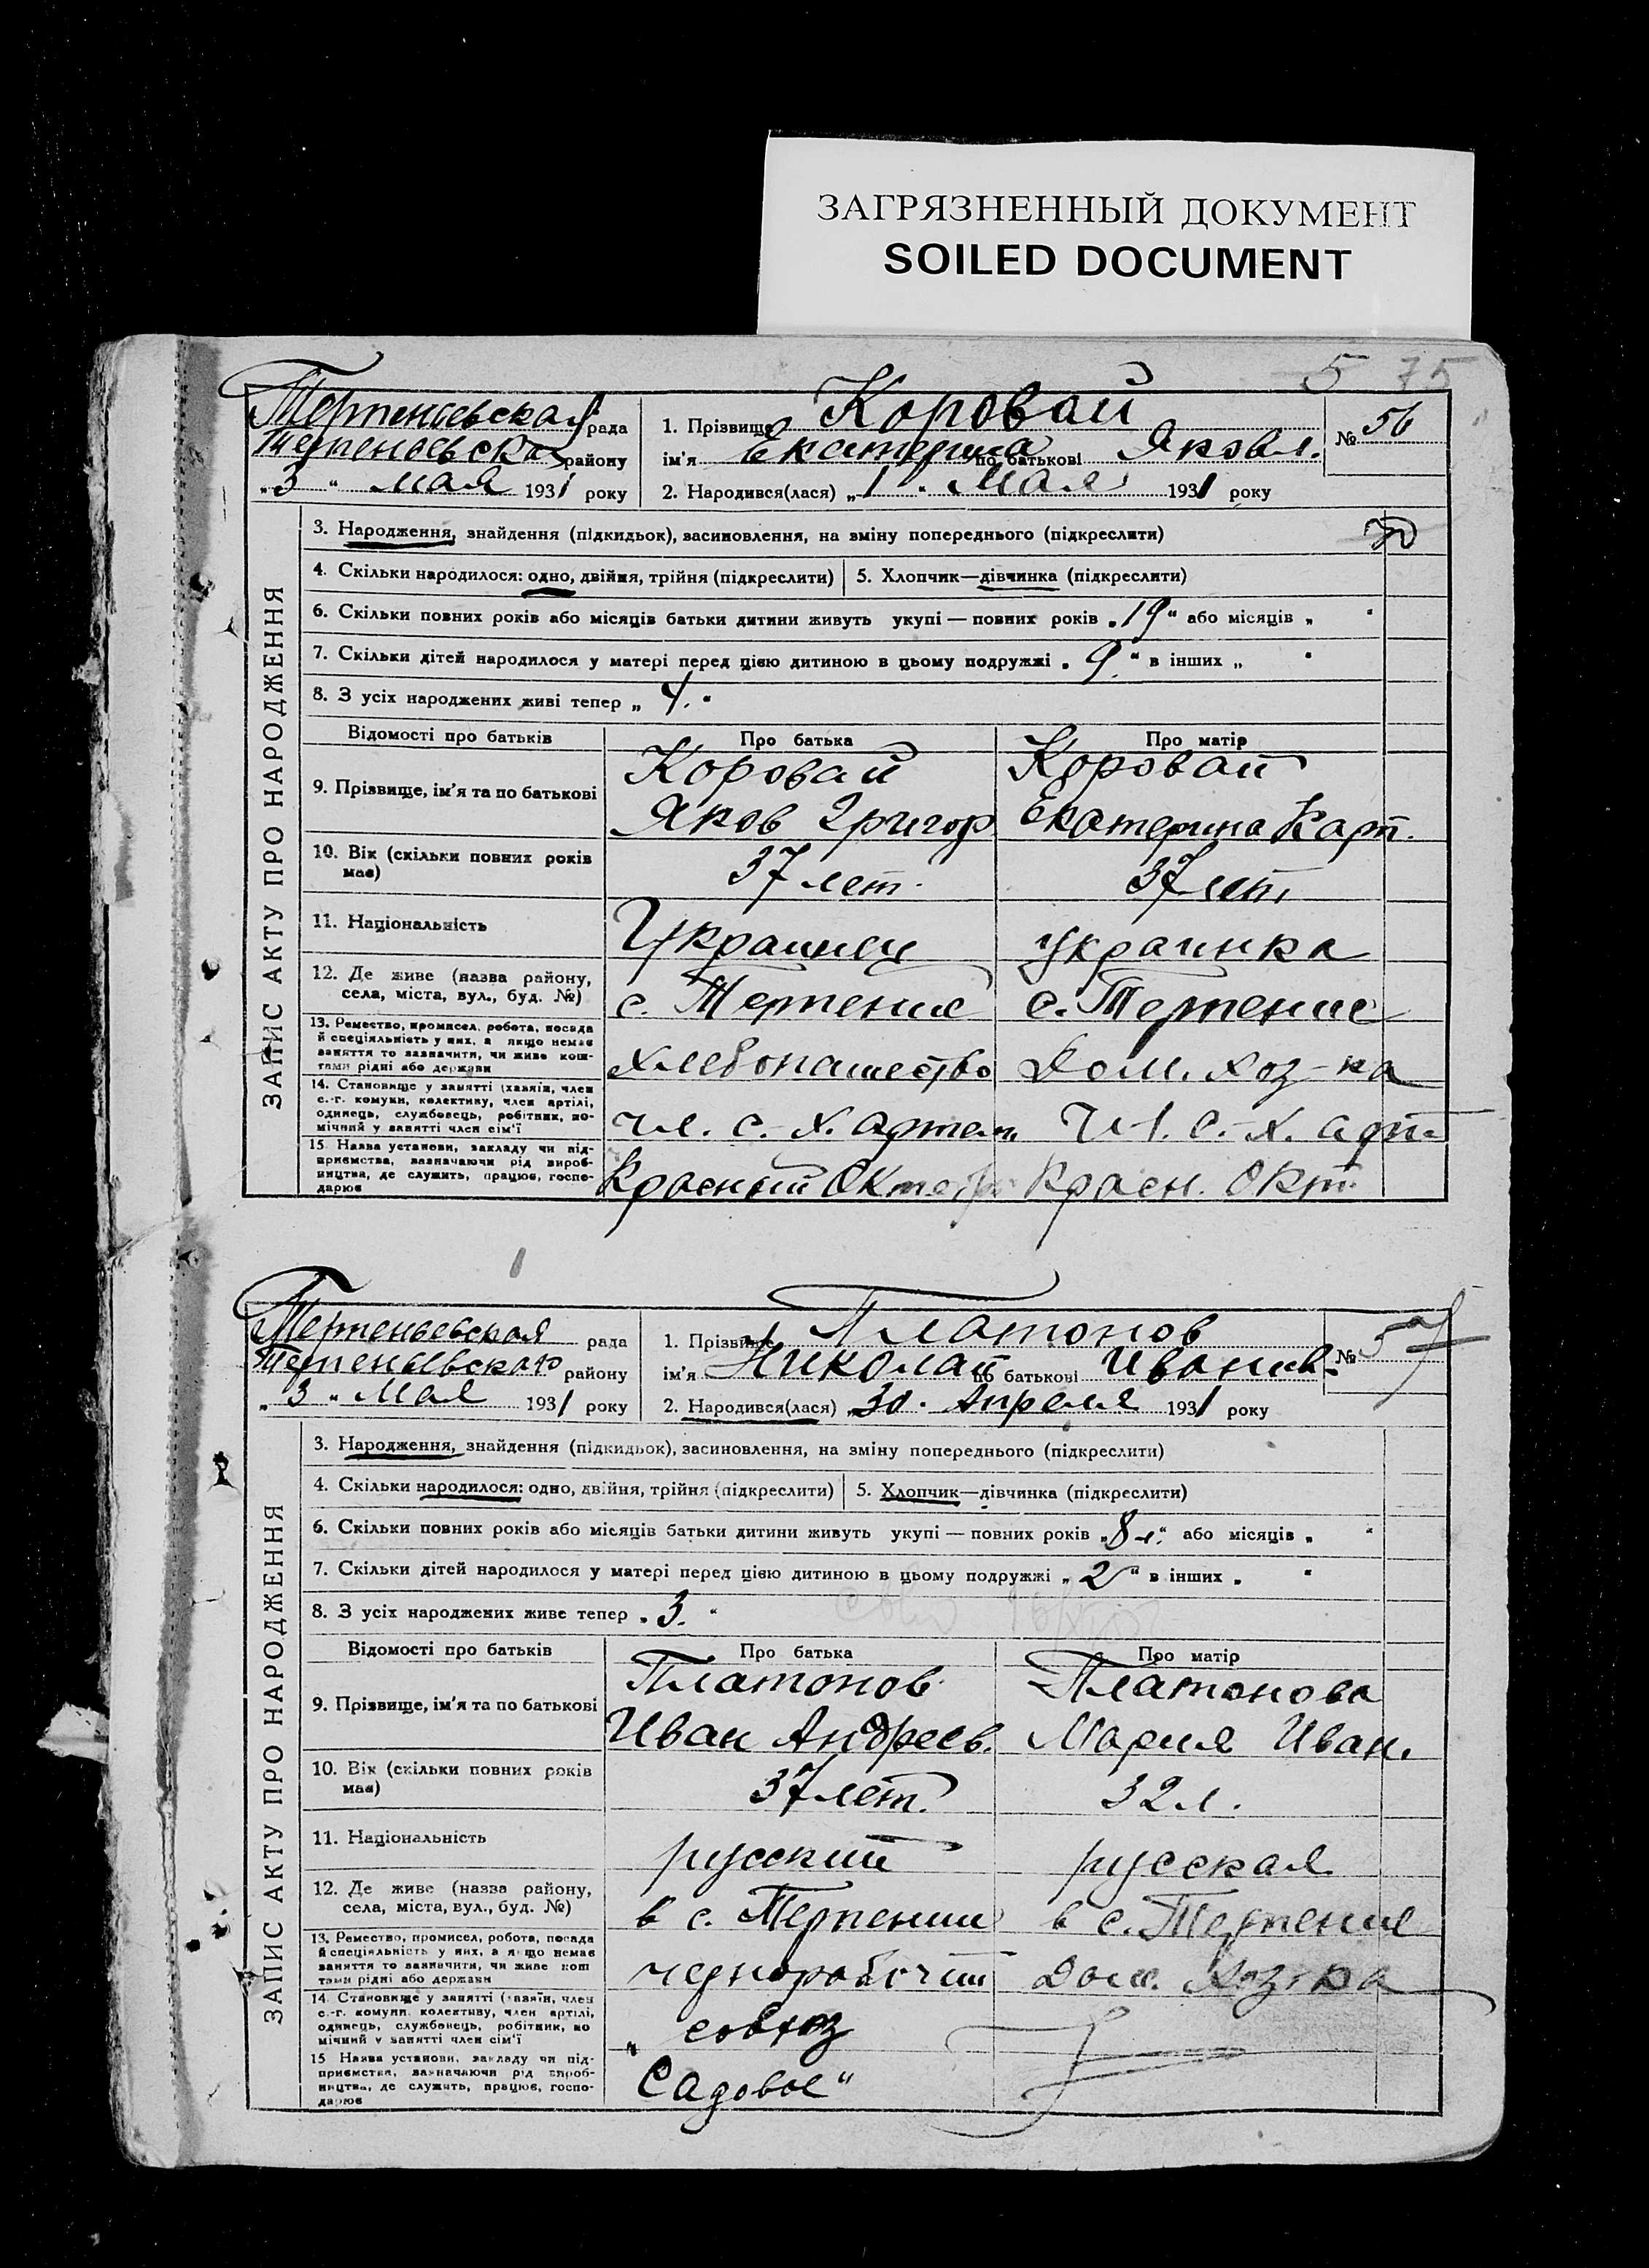 ЗАГРЯЗНЕННЫЙ ДОКУМЕНТ
SOILED DOCUMENT
5 75
Терпеньевская рада
1. Прізвище Коровай
№ 56
району
ім'я Екатерина по батькові Яковл.
"3" мая 1931 року
2. Народився(лася) "1" Мая 1931 року
ЗАПИС АКТУ ПРО НАРОДЖЕННЯ
3. Народження, знайдення (підкидьок), засиновлення, на зміну попереднього (підкреслити)
4. Скільки народилося: одно, двійня, трійня (підкреслити)
5. Хлопчик—дівчинка (підкреслити)
6. Скільки повних років або місяців батьки дитини живуть укупі — повних років "19" або місяців „ "
7. Скільки дітей народилося у матері перед цією дитиною в цьому подружжі „9." в інших „ "
8. З усіх народжених живі тепер „ 4. "
Відомості про батьків
Про батька
Про матір
9. Прізвище, ім'я та по батькові
Коровай
Яков Григор
Коровай
Екатерина Карп.
10. Вік (скільки повних років має)
37 лет.
37 лет.
11. Національність
Украинец
украинка
12. Де живе (назва району,
села, міста, вул., буд. №)
с. Терпение
с. Терпение
13. Ремество, промисел, робота, посада
й спеціяльність у них, а якщо немає
заняття то зазначити, чи живе кош-
тами рідні або держави
хлебопашество
Дом. хоз-ка
14. Становище у занятті (хазяїн, член
с.-г. комуни, колективу, член артілі,
одинець, службовець, робітник, по-
мічний у занятті член сім'ї
чл. с.-х. артел.
чл. с.-х. арт.
15. Назва установи, закладу чи під-
приємства, зазначаючи рід вироб-
ництва, де служить, працює, госпо-
дарює
Красный Октябр
Красн. Окт.
Терпеньевская рада
1. Прізвище Платонов
№ 57
Терпеньевского району
ім'я Николай по батькові Иванов.
"3" Мая 1931 року
2. Народився(лася) "30" Апреля 1931 року
ЗАПИС АКТУ ПРО НАРОДЖЕННЯ
3. Народження, знайдення (підкидьок), засиновлення, на зміну попереднього (підкреслити)
4. Скільки народилося: одно, двійня, трійня (підкреслити)
5. Хлопчик—дівчинка (підкреслити)
6. Скільки повних років або місяців батьки дитини живуть укупі — повних років „8 л." або місяців „ "
7. Скільки дітей народилося у матері перед цією дитиною в цьому подружжі „ 2 " в інших „ "
8. З усіх народжених живе тепер „3. "
Відомості про батьків
Про батька
Про матір
9. Прізвище, ім'я та по батькові
Платонов
Иван Андреев.
Платонова
Мария Иван.
10. Вік (скільки повних років має)
37 лет.
32 л.
11. Національність
русский
русская
12. Де живе (назва району,
села, міста, вул., буд. №)
в с. Терпении
в с. Терпение
13. Ремество, промисел, робота, посада
й спеціяльність у них, а якщо немає
заняття то зазначити, чи живе кош
тами рідні або держави
чернорабочий
Дом. хоз-ка
14. Становище у занятті (хазяїн, член
с.-г. комуни, колективу, член артілі,
одинець, службовець, робітник, по
мічний у занятті член сім'ї
15 Назва установи, закладу чи під-
приємства, зазначаючи рід вироб-
ництва, де служить, працює, госпо-
дарює
„ совхоз
Садовое"